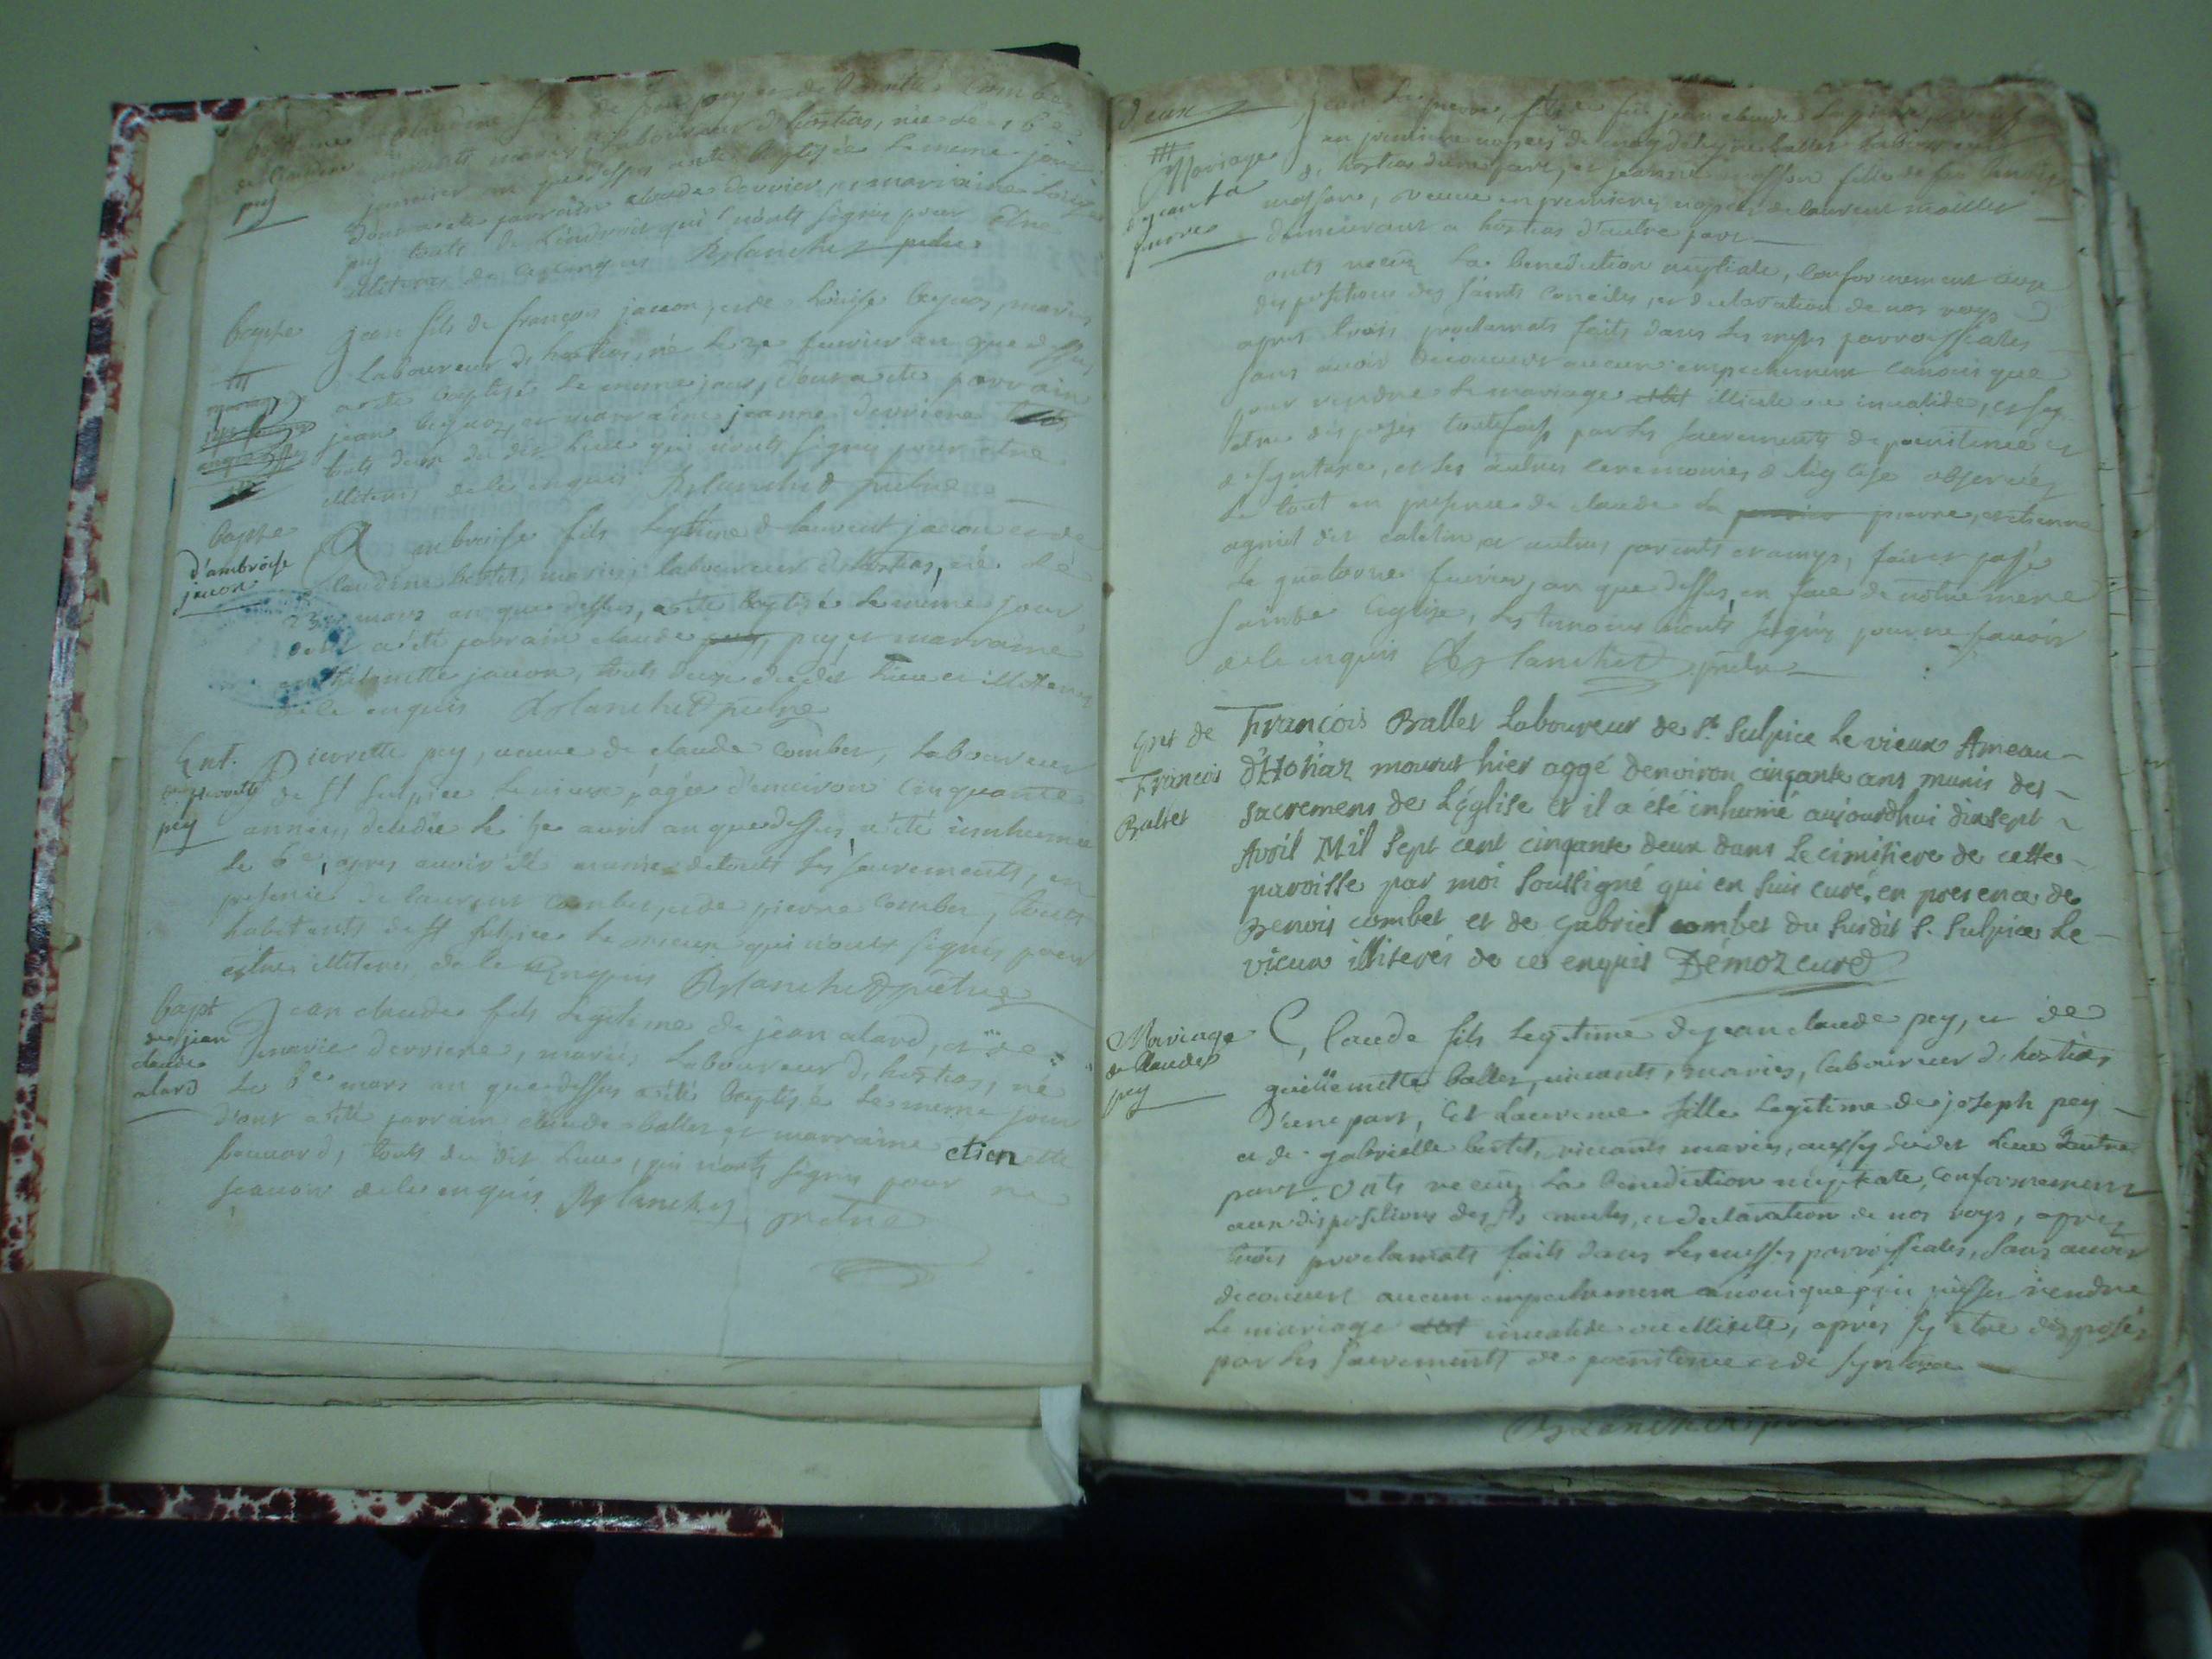 baptême
de Claudine
pey
Claudine fille de
mariés laboureur d'hostias, née le 16e
janvier an que dessus a été baptisée le meme jour
dont a été parrain claude derriere, et marraine
pey touts de l'endroit qui n'onts signés pour être
illiteres de ce enquis Blanchet pretre
bapte
jean fils de françois jacon, et de Loüise mariés
Laboureur d'hostias, né le 2e fevrier an que dessus
a été baptisé le meme jour, dont a été parrain
jean et marraine jeanne derriere
touts deux du dit Lieu qui n'onts signés pour etre
illiteres de le enquis Blanchet pretre
bapte
d'ambroise
jacon
Ambroise fils legitime de laurent jacon et de
claudine bertet, mariés laboureur d'hostias, né le
mars an que dessus, a été baptisé le même jour,
dont a été parrain claude pey, et marraine
jacon, touts deux du dit Lieu et illiteres
de le enquis Blanchet pretre
Ent.
pierrette
pey
Pierrette pey, veuve de claude combet, laboureur
de st sulpice le vieux, agée d'environ cinquante
années, decedée le 5e avril an que dessus, a été innhumée
le 6e, apres avoir été munie de touts les sacrements, en
presence de laurent combet, et de pierre combet, touts
habitants de st sulpice le vieux qui n'onts signés pour
estre illiteres de le enquis Blanchet pretre
bapt
de jean
claude
alard
Jean claude fils legitime de jean alard, et de
marie derriere, mariés, Laboureur d'hostias, né
le 8e mars an que dessus a été baptisé le meme jour
dont a été parrain claude ballet et marraine etiennette
bouvard, touts du dit Lieu, qui n'onts signés pour ne
sçavoir de le enquis Blanchet pretre
deux
Mariage
Jean La pierre, fils de fût jean claude La pierre, veuf
en premieres nopces de ballet laboureur
d'hostias d'une part, et jeanne masson fille de feu
masson, veuve en premieres nopces de laurent
demeurant a hostias d'autre part
onts receu la benediction nuptiale, conformement aux
dispositions des saints conciles, et declaration de nos roys
apres trois proclamats faits dans les messes parroissiales
sans avoir decouvert aucun empechement canonique
pour rendre le mariage illicite ou invalide, et s'y
etre disposés toutefois par les sacrements de pœnitence et
de synaxe, et les autres ceremonies de l'eglise observées
le tout en presence de claude La pierre, etienne
agniel dit catelin et autres parents et amys, fait et passé
le quatorze fevrier, an que dessus, en face de notre mere
sainte Eglise, les temoins n'onts signés pour ne sçavoir
de le enquis Blanchet pretre
Ent de
François
Ballet
François Ballet Laboureur de St. Sulpice le vieux Ameau
d'Hotiaz mourut hier aggé d'environ cinqante ans munis des
sacremens de L'église et il a été inhumé aujourdhui dixsept
Avril Mil sept cent cinqante deux dans le cimitiere de cette
paroisse par moi soussigné qui en suis curé, en presence de
Benois combet et de Gabriel combet du susdit S. Sulpice le
vieux illiterés de ce enquis Démoz curé
Mariage
de Claude
pey
Claude fils legitime de jean claude pey, et de
guillemette ballet, vivants, mariés, laboureur d'hostias
d'une part, Et Laurence fille legitime de joseph pey
et de gabrielle bertet, vivants mariés, aussy du dit Lieu d'autre
part. Onts receu la benediction nuptiale, conformement
aux dispositions des sts conciles, et declaration de nos roys, apres
trois proclamats faits dans les messes parroissiales, sans avoir
decouvert aucun empechement canonique qui puisse rendre
le mariage invalide ou illicite, après s'y etre disposés
par les sacrements de pœnitence et de synaxe
Blanchet